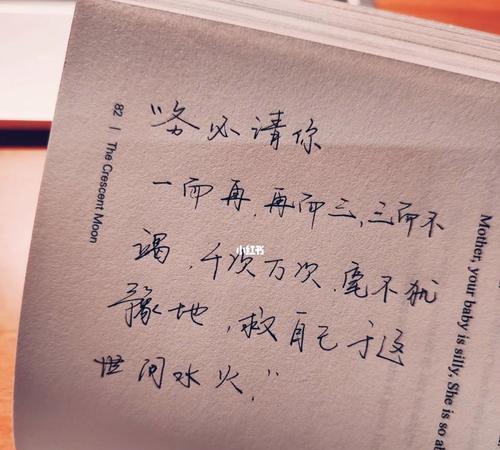 "务必请你
一而再,再而三,三而不
竭,千次万次,毫不犹
豫地,救自己于这
世间水火."
小红书
82 | The Crescent Moon
Mother, your baby is silly, She is so